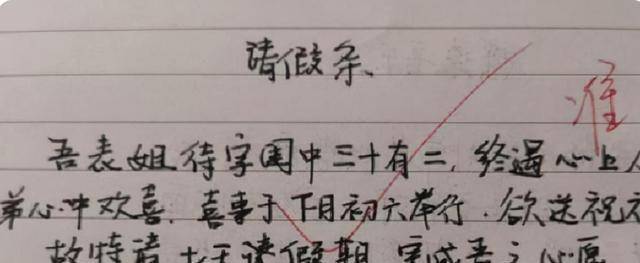 请假条
准
吾表姐待字闺中三十有二，终遇心上
弟心中欢喜，喜事于下月初六举行，欲送祝
故特请 请假期，完成吾之心愿